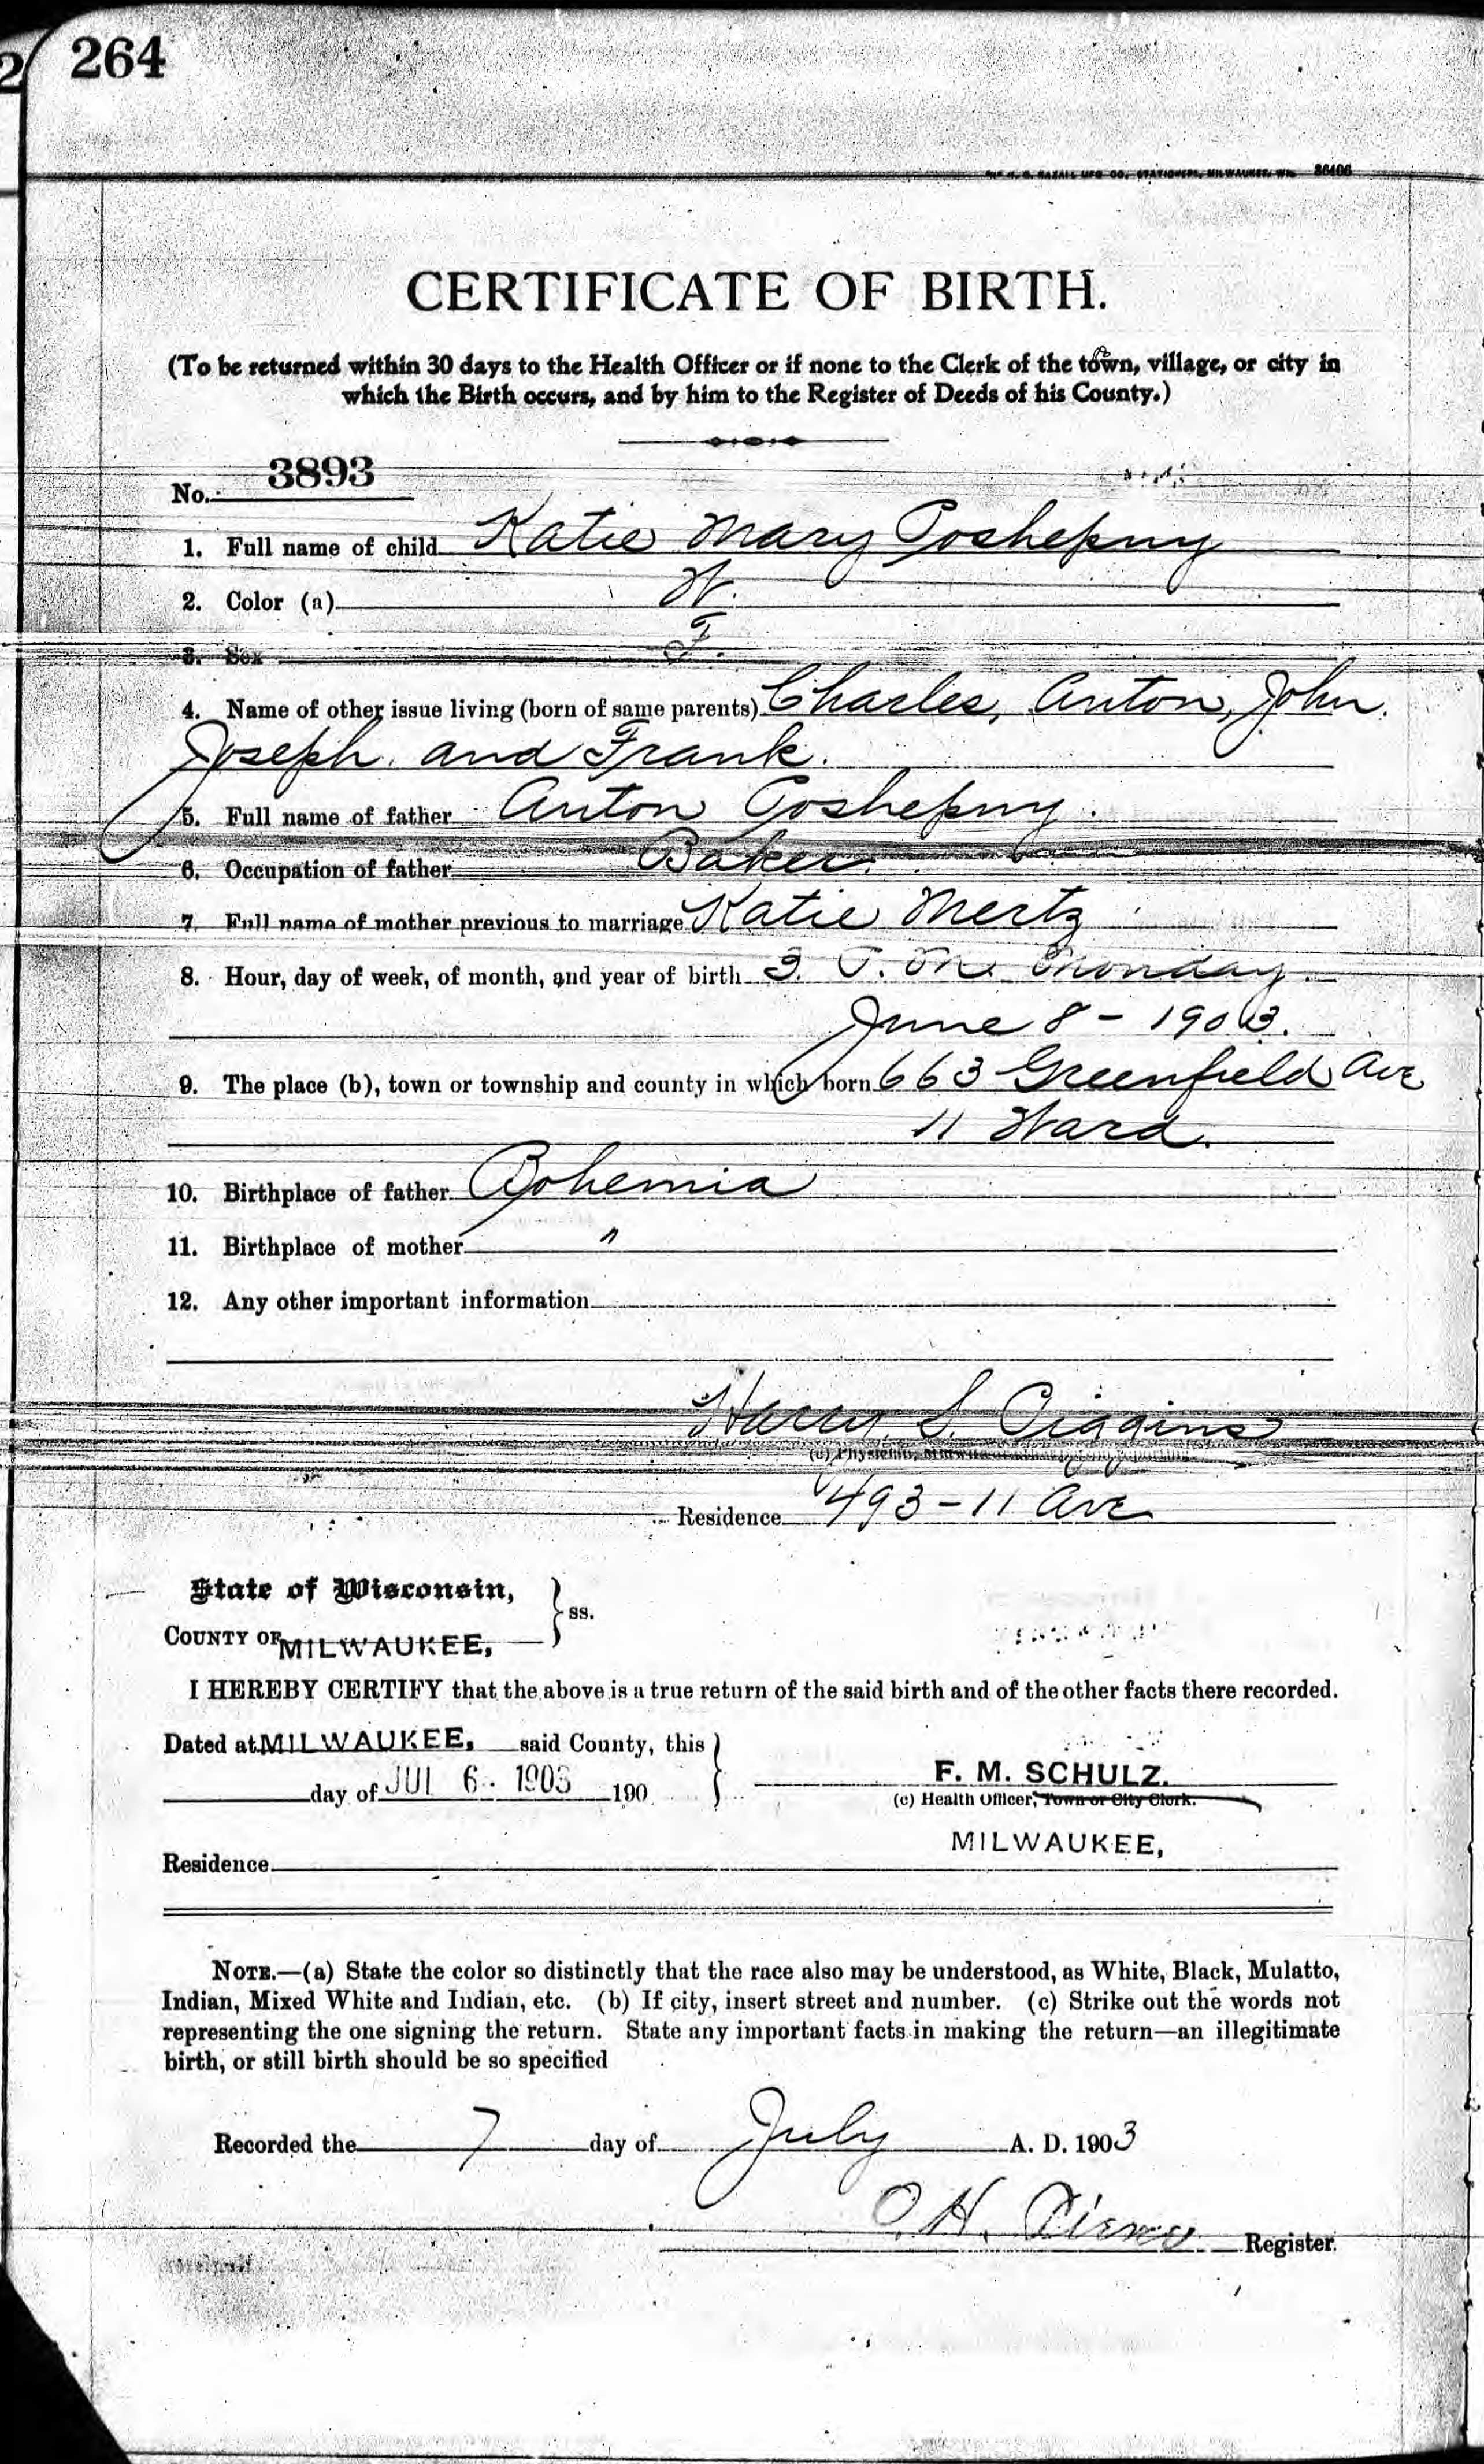 264
MFG CO., STATIONERS, MILWAUKEE, WIS. 36406
CERTIFICATE OF BIRTH.
(To be returned within 30 days to the Health Officer or if none to the Clerk of the town, village, or city in
which the Birth occurs, and by him to the Register of Deeds of his County.)
No. 3893
1. Full name of child Katie Mary Poshepny
2. Color (a) W.
3. Sex F.
4. Name of other issue living (born of same parents) Charles, Anton, John.
Joseph. and Frank.
5. Full name of father Anton Poshepny.
6. Occupation of father Baker.
7. Full name of mother previous to marriage Katie Mertz
8. Hour, day of week, of month, and year of birth 3. P. M. Monday.
June 8 - 1903.
9. The place (b), town or township and county in which born 663 Greenfield Ave
11 Ward.
10. Birthplace of father Bohemia
11. Birthplace of mother "
12. Any other important information
Harry S. Piggins
(c) Physician,
Residence 493-11 Ave
State of Wisconsin,
COUNTY OF MILWAUKEE, } ss.
I HEREBY CERTIFY that the above is a true return of the said birth and of the other facts there recorded.
Dated at MILWAUKEE, said County, this
day of JUL 6. 1903 190
F. M. SCHULZ.
(c) Health Officer, Town or City Clerk.
MILWAUKEE,
Residence
NOTE.—(a) State the color so distinctly that the race also may be understood, as White, Black, Mulatto,
Indian, Mixed White and Indian, etc. (b) If city, insert street and number. (c) Strike out the words not
representing the one signing the return. State any important facts in making the return—an illegitimate
birth, or still birth should be so specified
Recorded the 7 day of July A. D. 1903
O. H. Register.